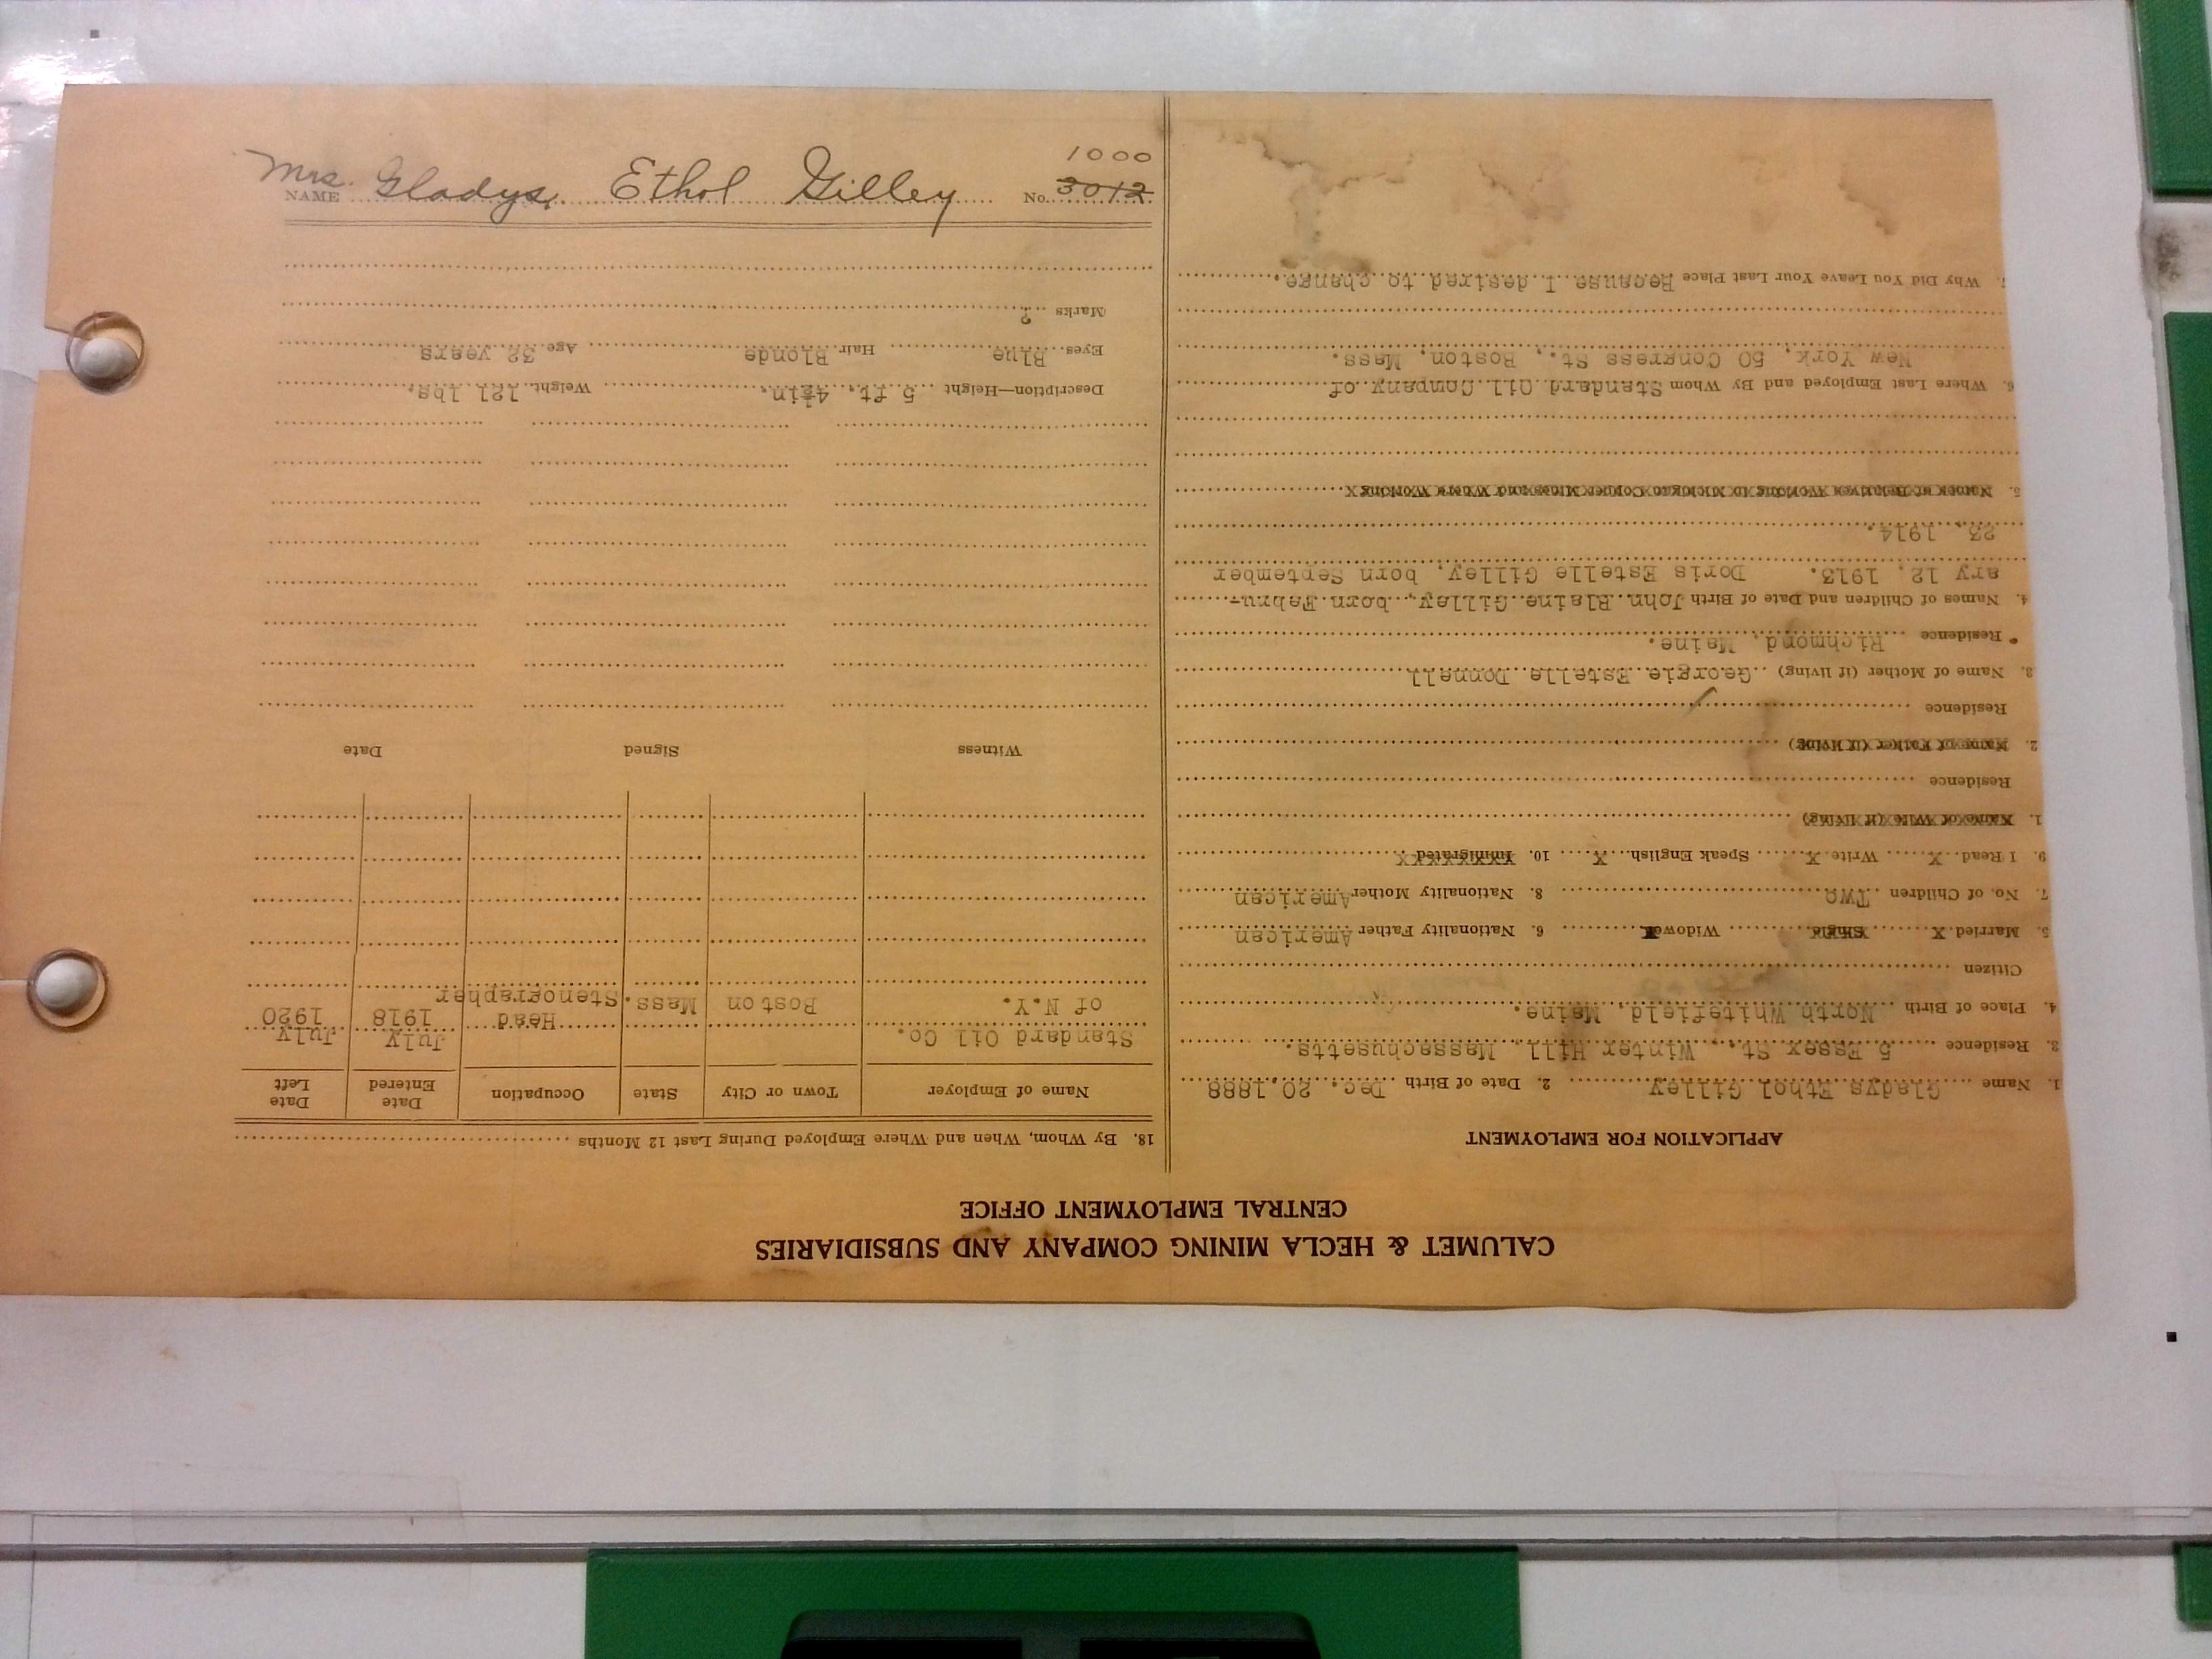 CALUMET & HECLA MINING COMPANY AND SUBSIDIARIES
CENTRAL EMPLOYMENT OFFICE
APPLICATION FOR EMPLOYMENT
1. Name Gladys Ethol Gilley 2. Date of Birth Dec. 20, 1888
3. Residence 5 Essex St., Winter Hill, Massachusetts.
4. Place of Birth North Whitefield, Maine.
Citizen
5. Married X Single Widowed 6. Nationality Father American
7. No. of Children Two 8. Nationality Mother American
9. I Read X Write X Speak English X 10. Immigrated
1. Name of Wife (if living)
Residence
2. Name of Father (if living)
Residence
3. Name of Mother (if living) Georgie Estelle Donnell
Residence Richmond, Maine.
4. Names of Children and Date of Birth John Blaine Gilley, born Febru-
ary 12, 1913. Doris Estelle Gilley, born September
23, 1914.
5. Names of Relatives Working in Michigan Copper Mines and Where Working
6. Where Last Employed and By Whom Standard Oil Company of
New York, 50 Congress St., Boston, Mass.
7. Why Did You Leave Your Last Place Because I desired to change.
18. By Whom, When and Where Employed During Last 12 Months
Name of Employer Town or City State Occupation Date Entered Date Left
Standard Oil Co. Head July July
of N.Y. Boston Mass. Stenographer 1918 1920
Witness Signed Date
Description—Height 5 ft. 4½in. Weight 121 lbs.
Eyes Blue Hair Blonde Age 32 years
Marks ?
1000
NAME Mrs. Gladys Ethol Gilley No. 3012